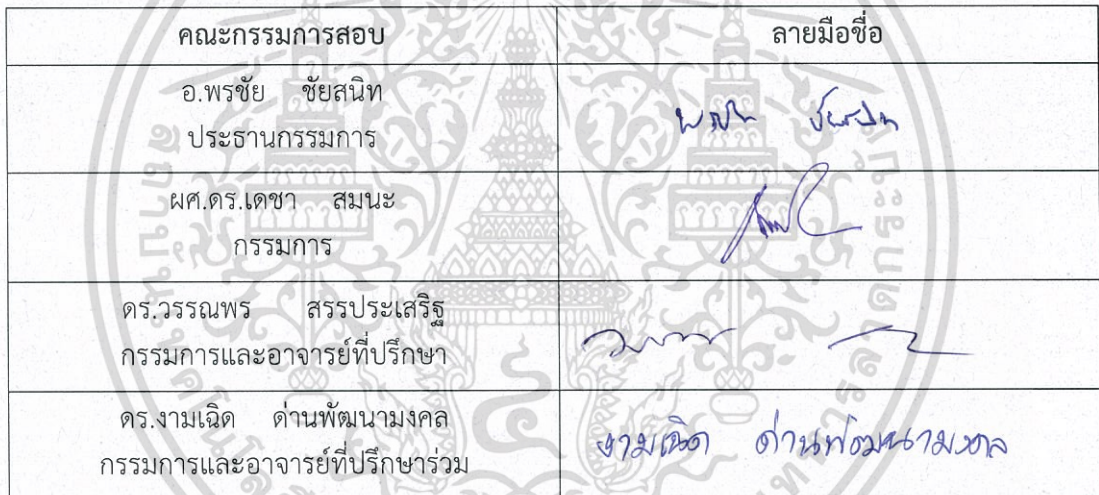 คณะกรรมการสอบ ลายมือชื่อ
อ.พรชัย ชัยสนิท
ประธานกรรมการ
ผศ.ดร.เดชา สมนะ
กรรมการ
ดร.วรรณพร สรรประเสริฐ
กรรมการและอาจารย์ที่ปรึกษา
ดร.งามเฉิด ด่านพัฒนามงคล
กรรมการและอาจารย์ที่ปรึกษาร่วม
งามเฉิด ด่านพัฒนามงคล